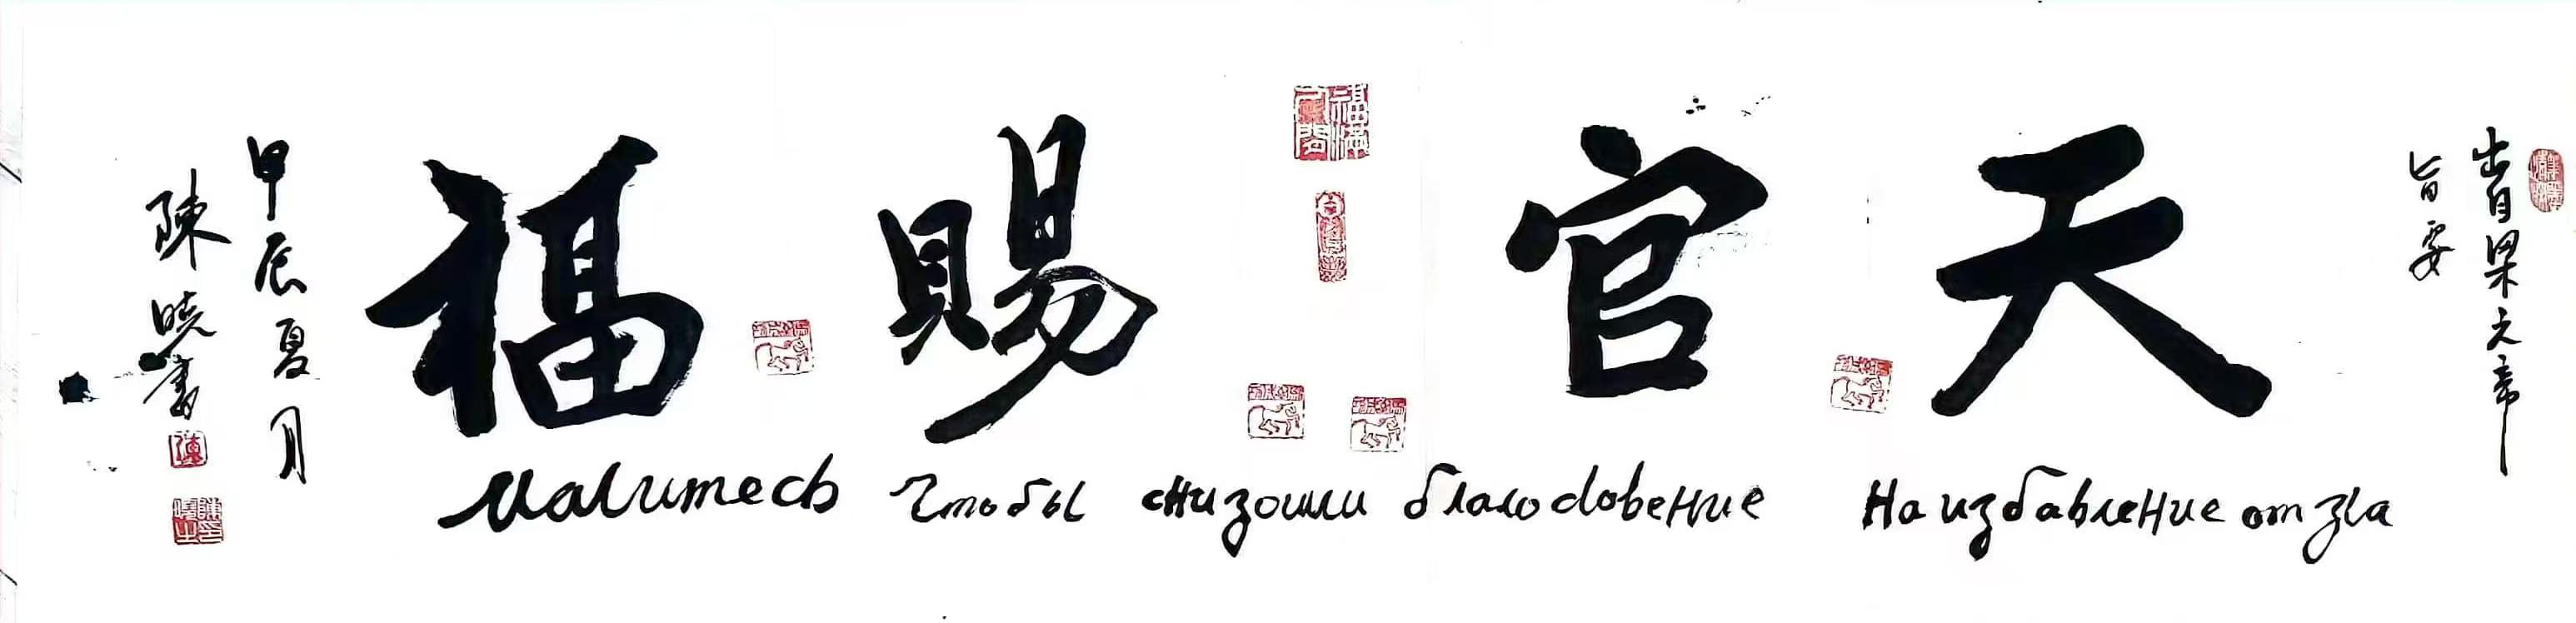 出自梁元帝
旨要
天官賜福
甲辰夏月
陳曉書
Малитесь Чтобы снизошли благословение На избавление от зла
福滿
陳